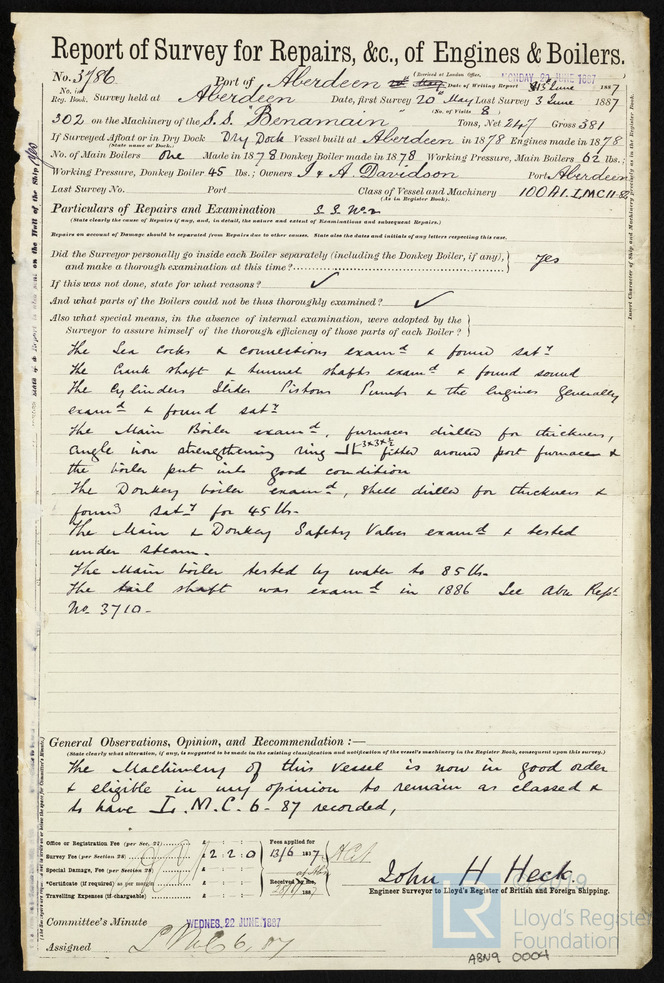 Report of Survey for Repairs, &c., of Engines & Boilers.
No. 3786 Port of Aberdeen (Received at London Office, MONDAY 20 JUNE 1887
No. in Reg. Book. Survey held at Aberdeen Date of Writing Report 13th June 1887
Date, first Survey 20 May Last Survey 3 June 1887
(No. of Visits 8)
302 on the Machinery of the S.S. Benamain Tons, Net 247 Gross 381
If Surveyed Afloat or in Dry Dock Dry Dock Vessel built at Aberdeen in 1878 Engines made in 1878
(State name of Dock.)
No. of Main Boilers one Made in 1878 Donkey Boiler made in 1878 Working Pressure, Main Boilers 62 lbs.;
Working Pressure, Donkey Boiler 45 lbs.; Owners J & A Davidson Port Aberdeen
Last Survey No. Port Class of Vessel and Machinery 100A1. LMC 11-82
(As in Register Book).
Particulars of Repairs and Examination S.S. No 2
(State clearly the cause of Repairs if any, and, in detail, the nature and extent of Examinations and subsequent Repairs.)
Repairs on account of Damage should be separated from Repairs due to other causes. State also the dates and initials of any letters respecting this case.
Did the Surveyor personally go inside each Boiler separately (including the Donkey Boiler, if any), and make a thorough examination at this time? yes
If this was not done, state for what reasons? ✓
And what parts of the Boilers could not be thus thoroughly examined? ✓
Also what special means, in the absence of internal examination, were adopted by the
Surveyor to assure himself of the thorough efficiency of those parts of each Boiler?
The Sea Cocks & connections examd & found saty
The Crank shaft & tunnel shafts examd & found sound
The Cylinders Slides Pistons Pumps & the Engines generally
examd & found saty
The Main Boiler examd, furnaces drilled for thickness,
angle iron strengthening ring 3x3x½ fitted around port furnace &
the boiler put into good condition
The Donkey boiler examd, shell drilled for thickness &
found saty for 45 lbs.
The Main & Donkey Safety Valves examd & tested
under steam.
The Main boiler tested by water to 85 lbs.
The tail shaft was examd in 1886 See Abn Rept
No. 3710-
General Observations, Opinion, and Recommendation :—
(State clearly what alteration, if any, is suggested to be made in the existing classification and notification of the vessel's machinery in the Register Book, consequent upon this survey.)
The Machinery of this Vessel is now in good order
& eligible in my opinion to remain as classed &
to have L.M.C. 6-87 recorded,
Office or Registration Fee (per Sec. 27)
Survey Fee (per Section 28) £ 2 : 2 : 0 Fees applied for 13/6 1887
Special Damage Fee (per Section 28) £
*Certificate (if required) as per margin £ Received by me,
Travelling Expenses (if chargeable) £
John H Heck
Engineer Surveyor to Lloyd's Register of British and Foreign Shipping.
Committee's Minute WEDNES. 22 JUNE 1887
Assigned LMC 6, 87
LR
© 2019
Lloyd's Register
Foundation
ABN9 0004